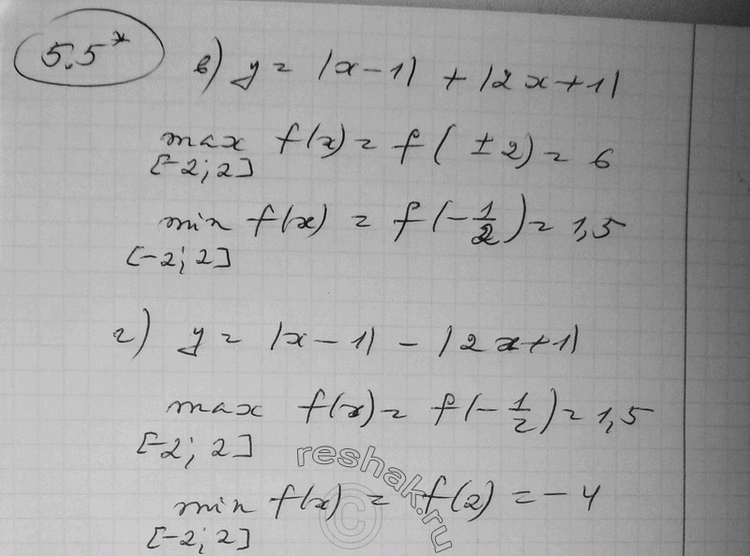 5.5* в) y = |x - 1| + |2x + 1|
max f(x) = f(±2) = 6
[-2; 2]
min f(x) = f(-1/2) = 1,5
[-2; 2]
г) y = |x - 1| - |2x + 1|
max f(x) = f(-1/2) = 1,5
[-2; 2]
reshak.ru
©
min f(x) = f(2) = -4
[-2; 2]